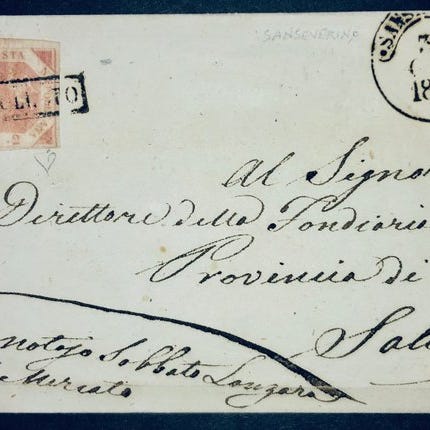 SANSEVERINO
STA
SANS
G. 2
18
Al Signor
Direttore della Fondiaria
Provincia di
Sal
notajo Sabbato Lanzara
Mercato